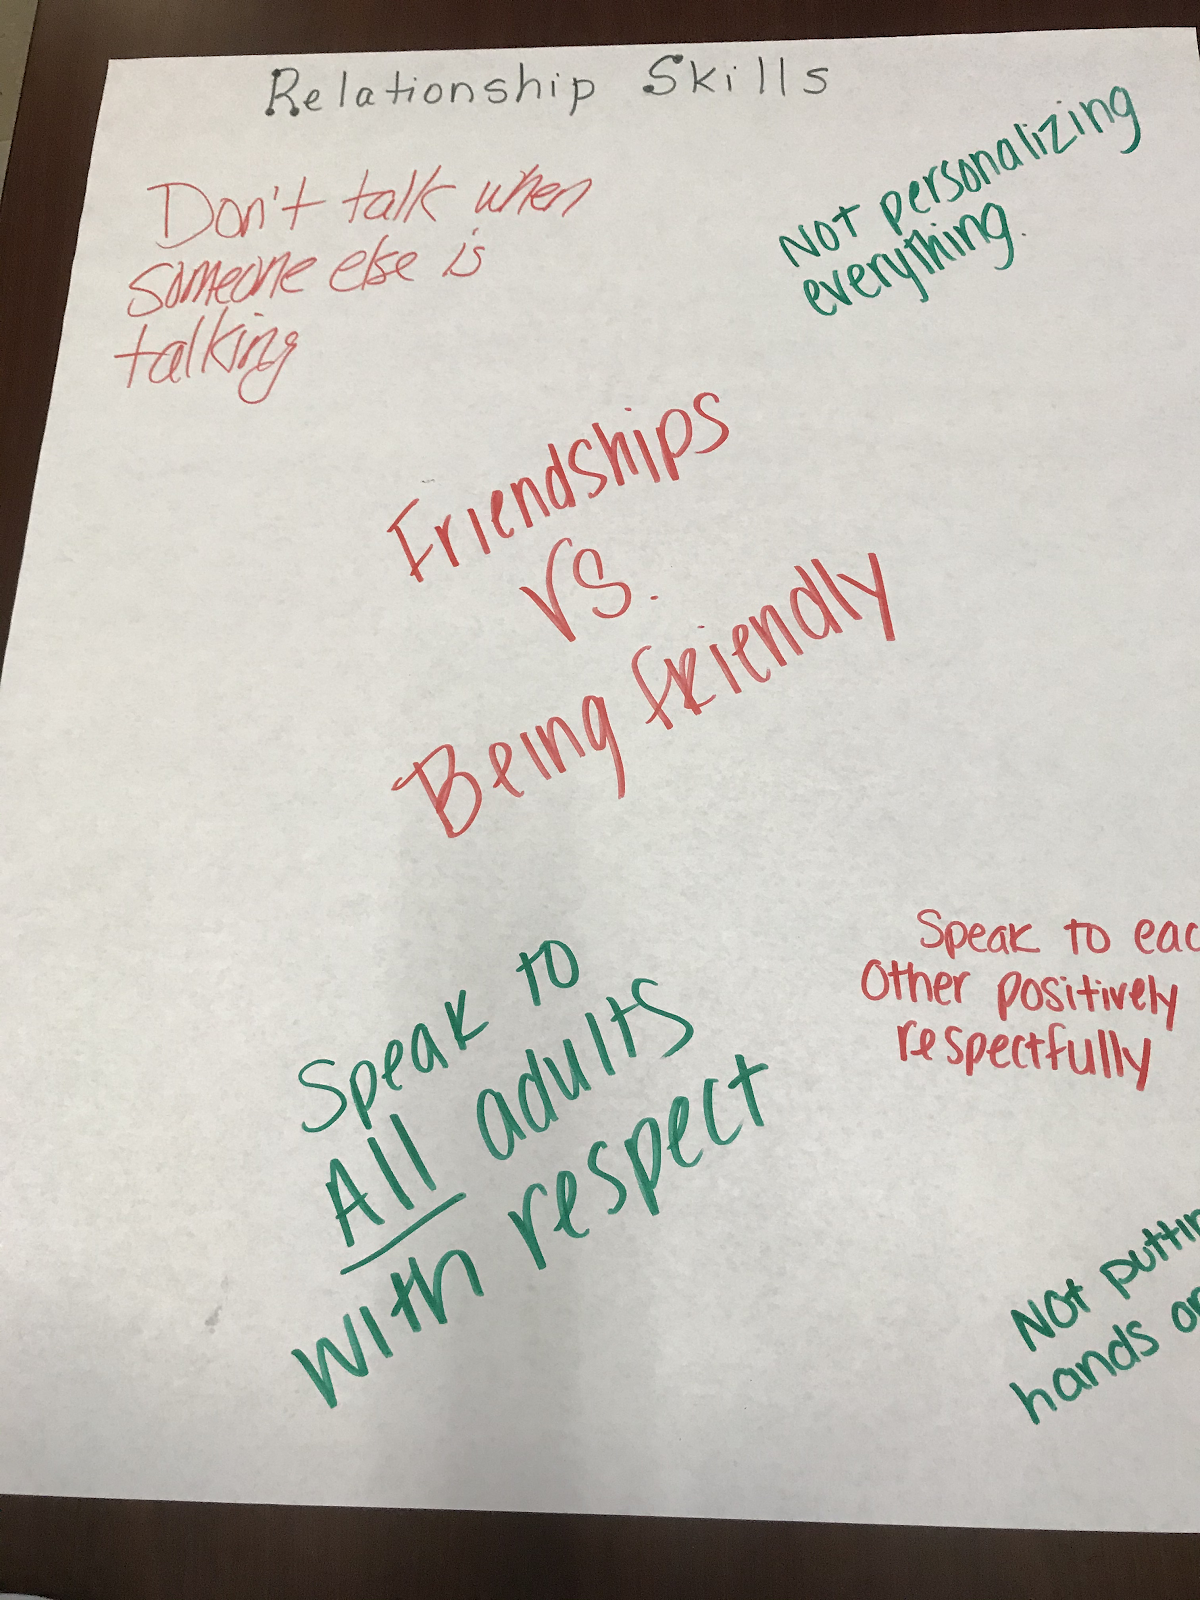 Relationship Skills
Don't talk when
someone else is
talking
Not personalizing
everything.
Friendships
vs.
Being friendly
Speak to
All adults
with respect
Speak to eac
Other positively
respectfully
Not puttin
hands